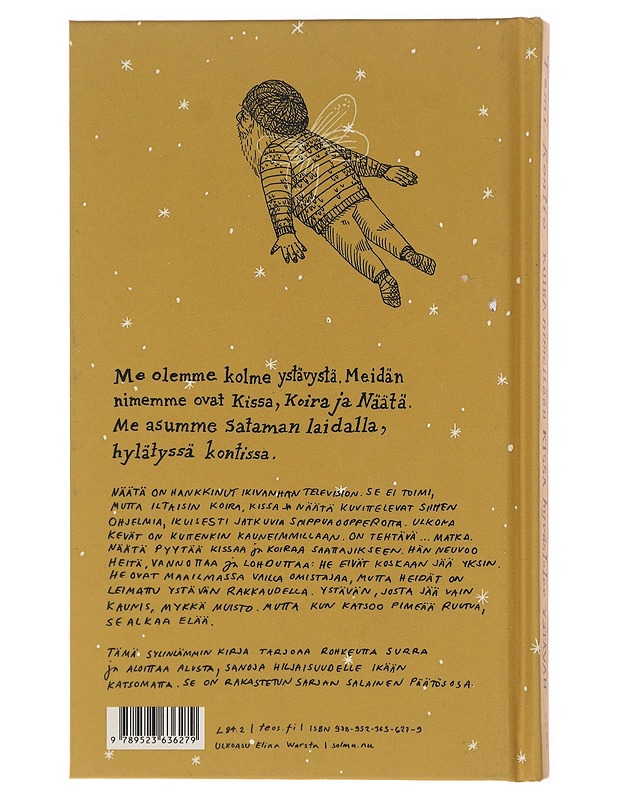 Me olemme kolme ystävystä. Meidän
nimemme ovat Kissa, Koira ja Näätä.
Me asumme Sataman laidalla,
hylätyssä kontissa.
NÄÄTÄ ON HANKKINUT IKIVANHAN TELEVISION. SE EI TOIMI,
MUTTA ILTAISIN KOIRA, KISSA JA NÄÄTÄ KUVITTELEVAT SIIHEN
OHJELMIA, IKUISESTI JATKUVIA SAIPPUAOOPPEROITA. ULKONA
KEVÄT ON KUITENKIN KAUNEIMMILLAAN. ON TEHTÄVÄ... MATKA.
NÄÄTÄ PYYTÄÄ KISSAA ja KOIRAA SAATTAJIKSEEN. HÄN NEUVOO
HEITÄ, VANNOTTAA ja LOHDUTTAA: HE EIVÄT KOSKAAN JÄÄ YKSIN.
HE OVAT MAAILMASSA VAILLA OMISTAJAA, MUTTA HEIDÄT ON
LEIMATTU YSTÄVÄN RAKKAUDELLA. YSTÄVÄN, JOSTA JÄÄ VAIN
KAUNIS, MYKKÄ MUISTO. MUTTA KUN KATSOO PIMEÄÄ RUUTUA,
SE ALKAA ELÄÄ.
TÄMÄ SYLINLÄMMIN KIRJA TARJOAA ROHKEUTTA SURRA
ja ALOITTAA ALUSTA, SANOJA HILJAISUUDELLE IKÄÄN
KATSOMATTA. SE ON RAKASTETUN SARJAN SALAINEN PÄÄTÖSOSA.
L84.2 | teos.fi | ISBN 978-952-363-627-9
ULKOASU Elina Warsta | solmu.nu
9 789523 636279
KOIRA nimeltään KISSA hyvästelee YSTÄVÄN